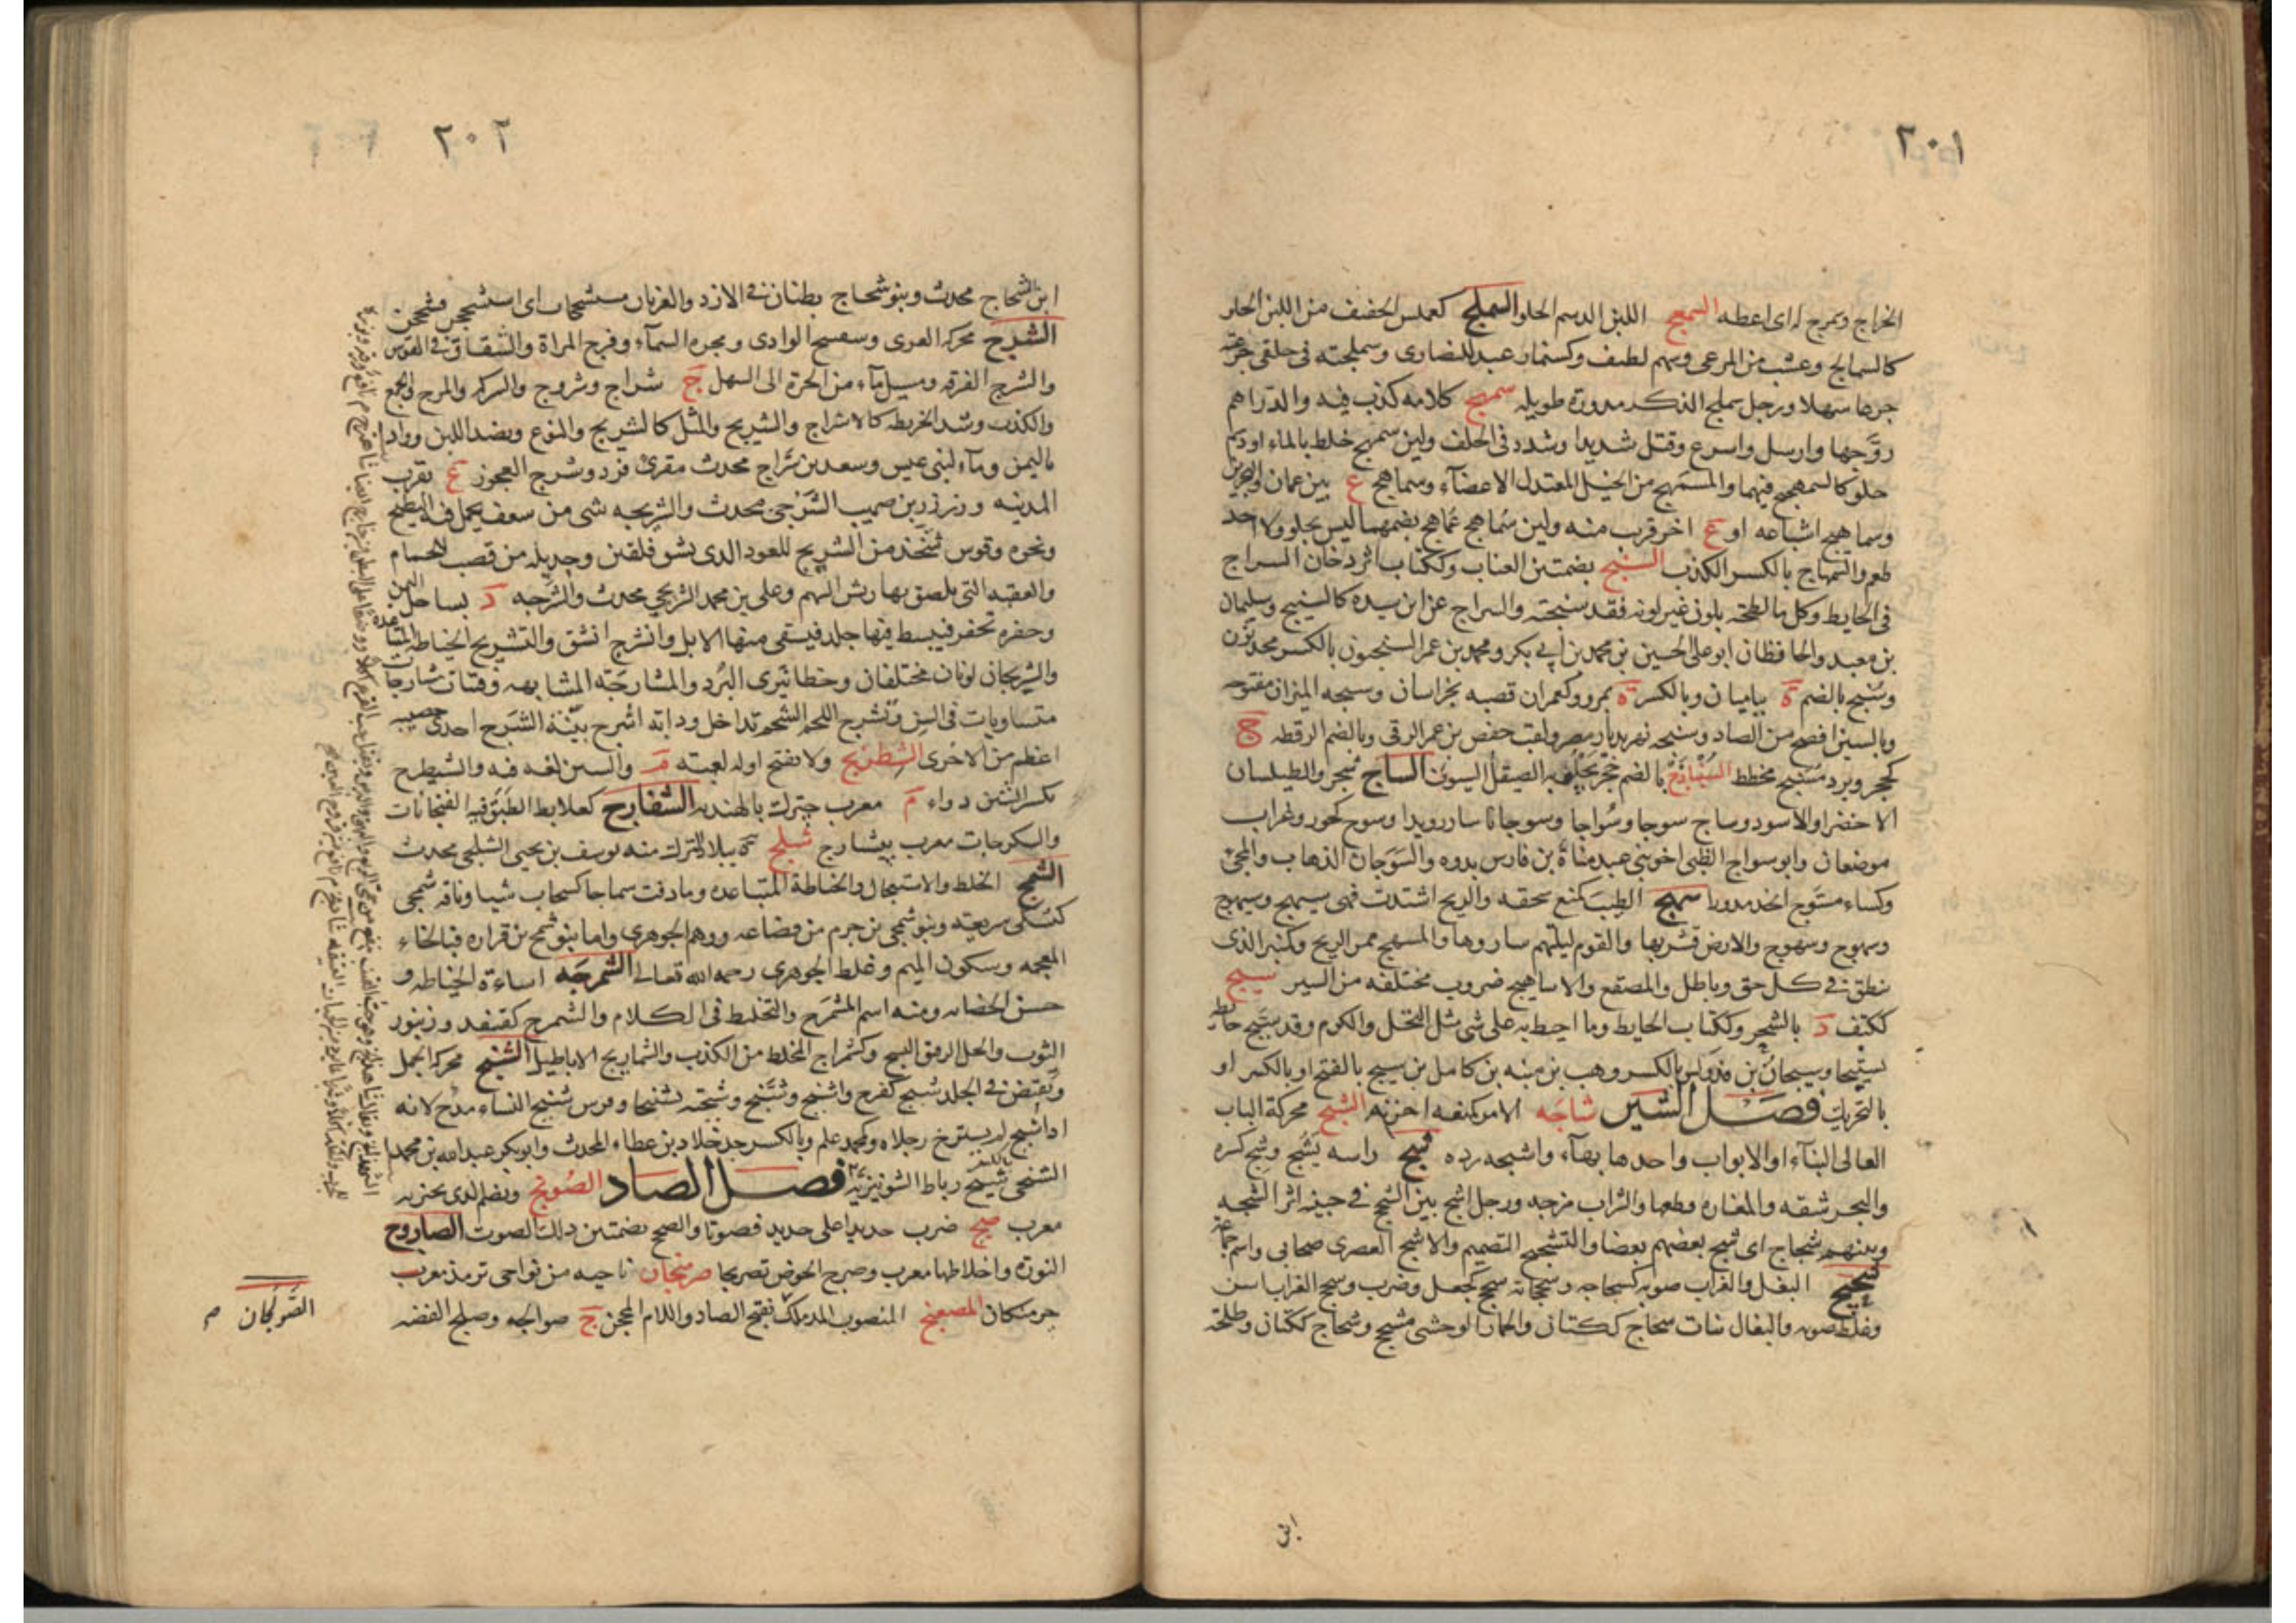 ٢٠١
الخراج وسمرج له اى اعطه السمعج اللبن الدسم الحلو السملج كعملس الخفيف من اللبن الحلو
كالسمالج وعشب من المرعى وسهم لطيف وكسنمار عيد للنصارى وسملجته فى حلقى جرعته
جرعا سهلا ورجل سملج الذكر مدوره طويله سمهج كلامه كذب فيه والدراهم
روّجها وارسل واسرع وفتل شديدا وشدد فى الحلف ولبن سمهج خلط بالماء او دسم
حلو كالسمهجيج فيهما والمسمهج من الخيل المعتدل الاعضاء وسماهج ع بين عمان والبحرين
وسماهيج اشباعه او ع اخر قرب منه ولبن سماهج عماهج بضمهما ليس بحلو ولا اخد
طعم والسمهاج بالكسر الكذب السنج بضمتين العناب وككتاب اثر دخان السراج
فى الحايط وكل ما لطخته بلون غير لونه فقد سنجته والسراج عن ابن سيده كالسنيج وسليمان
بن معبد والحافظان ابو على الحسين بن محمد بن ابى بكر ومحمد بن عمر السنجيون بالكسر محدثون
وسنج بالضم ة بباميان وبالكسر ة بمرو وكعمران قصبه بخراسان وسنجه الميزان مفتوحه
وبالسين افصح من الصاد وسنجه نهر بديار مصر ولقب حفص بن عمر الرقى وبالضم الرقطه ج
كحجر وبرد مسنج مخطط السنباذج بالضم حجر يجلو به الصيقل السيوف الساج شجر والطيلسان
الاخضر او الاسود وساج سوجا وسواجا وسوجانا سار رويدا وسوج كحور وغراب
موضعان وابو سواج الظبى اخو بنى عبد مناة بن فارس بدوه والسوجان الذهاب والمجئ
وكساء مسوج اتخذ مدورا سمهج الطيب كمنع سحقه والريح اشتدت فهى سيهج وسيهوج
وسهوج وسهوج والارض قشرها والقوم ليلتهم ساروها والمسهج ممر الريح وكمنبر الذى
ينطق فى كل حق وباطل والمصقع والاساهيج ضروب مختلفه من السير سيج
ككتف د بالشحر وككتاب الحايط وما احيط به على شى مثل النخل والكرم وقد سيج حايطه
تسييجا وسيجان بن فدوكس بالكسر ووهب بن منبه بن كامل بن سيج بالفتح او بالكسر او
بالتحريك فصل الشين شاجه الامر كمنعه احزنه الشبج محركة الباب
العالى البناء او الابواب واحدها بهاء واشبجه رده شج راسه يشج ويشج كسره
والبحر شقه والمفازه قطعها والشراب مزجه ورجل اشج بين الشجج فى جبينه اثر الشجه
وبينهم شجاج اى شج بعضهم بعضا والتشجيج التصميم والاشج العصرى صحابى واسم جماعه
شحيج البغل والغراب صوته كشحاجه وشحجانه شحج كجعل وضرب وشحج الغراب اسن
وغلظ صوته والبغال بنات شحاج ككتان والحمار الوحشى مشحج وشحاج ككتان وطلحة
ابن
٢٠٢
ابن الشحاج محدث وبنو شحاج بطنان فى الازد والغربان مستشحجات اى استشحجن فشحجن
الشرج محركه العرى ومنفسح الوادى ومجره السماء وفرج المراة والشقاق فى القوس
والشرج الفرقه ومسيل ماء من الحرة الى السهل ج شراج وشروج والشركه والمزج والجمع
والكذب وشد الخريطه كالاشراج والتشريج والمثل كالشريج والنوع ونضد اللبن وواد
باليمن وماء لبنى عبس وسعد بن شراج محدث مقرئ فرد وشرج العجوز ع بقرب
المدينه وزرزر بن صهيب الشرجى محدث والشريجه شى من سعف يحمل فيه البطيخ
ونحوه وقوس تتخذ من الشريج للعود الذى يشق فلقين وجديله من قصب للحمام
والعقبه التى يلصق بها ريش السهم وعلى بن محمد الشريجى محدث والشرجه د بساحل اليمن
وحفره تحفر فيبسط فيها جلد فيسقى منها الابل وانشرج انشق والتشريج الخياطه المتباعده
والشريجان لونان مختلفان وخطا نيرى البرد والمشارجه المشابهه وفتيات مشارجات
متساويات فى السن وتشرج اللحم الشحم تداخل ودابه اشرج بينه الشرج احدى خصييه
اعظم من الاخرى الشطرنج ولا يفتح اوله لعبته م والسين لغه فيه والشيطرج
بكسر الشين دواء م معرب جيترك بالهنديه الشفارج كعلابط الطبق فيه الفنجانات
والسكرجات معرب بيشارج شلج ة ببلاد الترك منه يوسف بن يحيى الشلجى محدث
الشمج الخلط والاستعجال والخياطة المتباعده وما ذقت شماجا كسحاب شيا وناقه شمجى
كبشكى سريعته وبنو شمجى بن جرم من قضاعه ووهم الجوهرى واما بنو شمخ بن فزاره فبالخاء
المعجمه وسكون الميم وغلط الجوهرى رحمه الله تعالى الشمرجه اساءة الخياطه و
حسن الحضانه ومنه اسم المشمرج والتخليط فى الكلام والشمرج كقنفد وزنبور
الثوب والحل الرقيق النسج وكشمراج المخلط من الكذب والشماريج الاباطيل الشنج محركه الجمل
وتقبض فى الجلد شنج كفرح وانشنج وتشنج وشنجته تشنيجا وفرس شنج النساء مدح لانه
اذا شنج لم يسترخ رجلاه وكمحمد علم وبالكسر جد خلاد بن عطاء المحدث وابو بكر عبد الله بن محمد
الشنجى شيخ رباط الشونيزيه فصل الصاد الصوبج ويضم الذى يخبز به
معرب صج ضرب حديدا على حديد فصوتا والصج بضمتين ذلك الصوت الصاروج
النوره واخلاطها معرب وصرج الحوض تصريجا صرمنجان ناحيه من نواحى ترمذ معرب
جرمنكان المصعنج المنصوب المدملك بفتح الصاد واللام المحجن ج صوالجه وصلج الفضه
الصَّولجان م